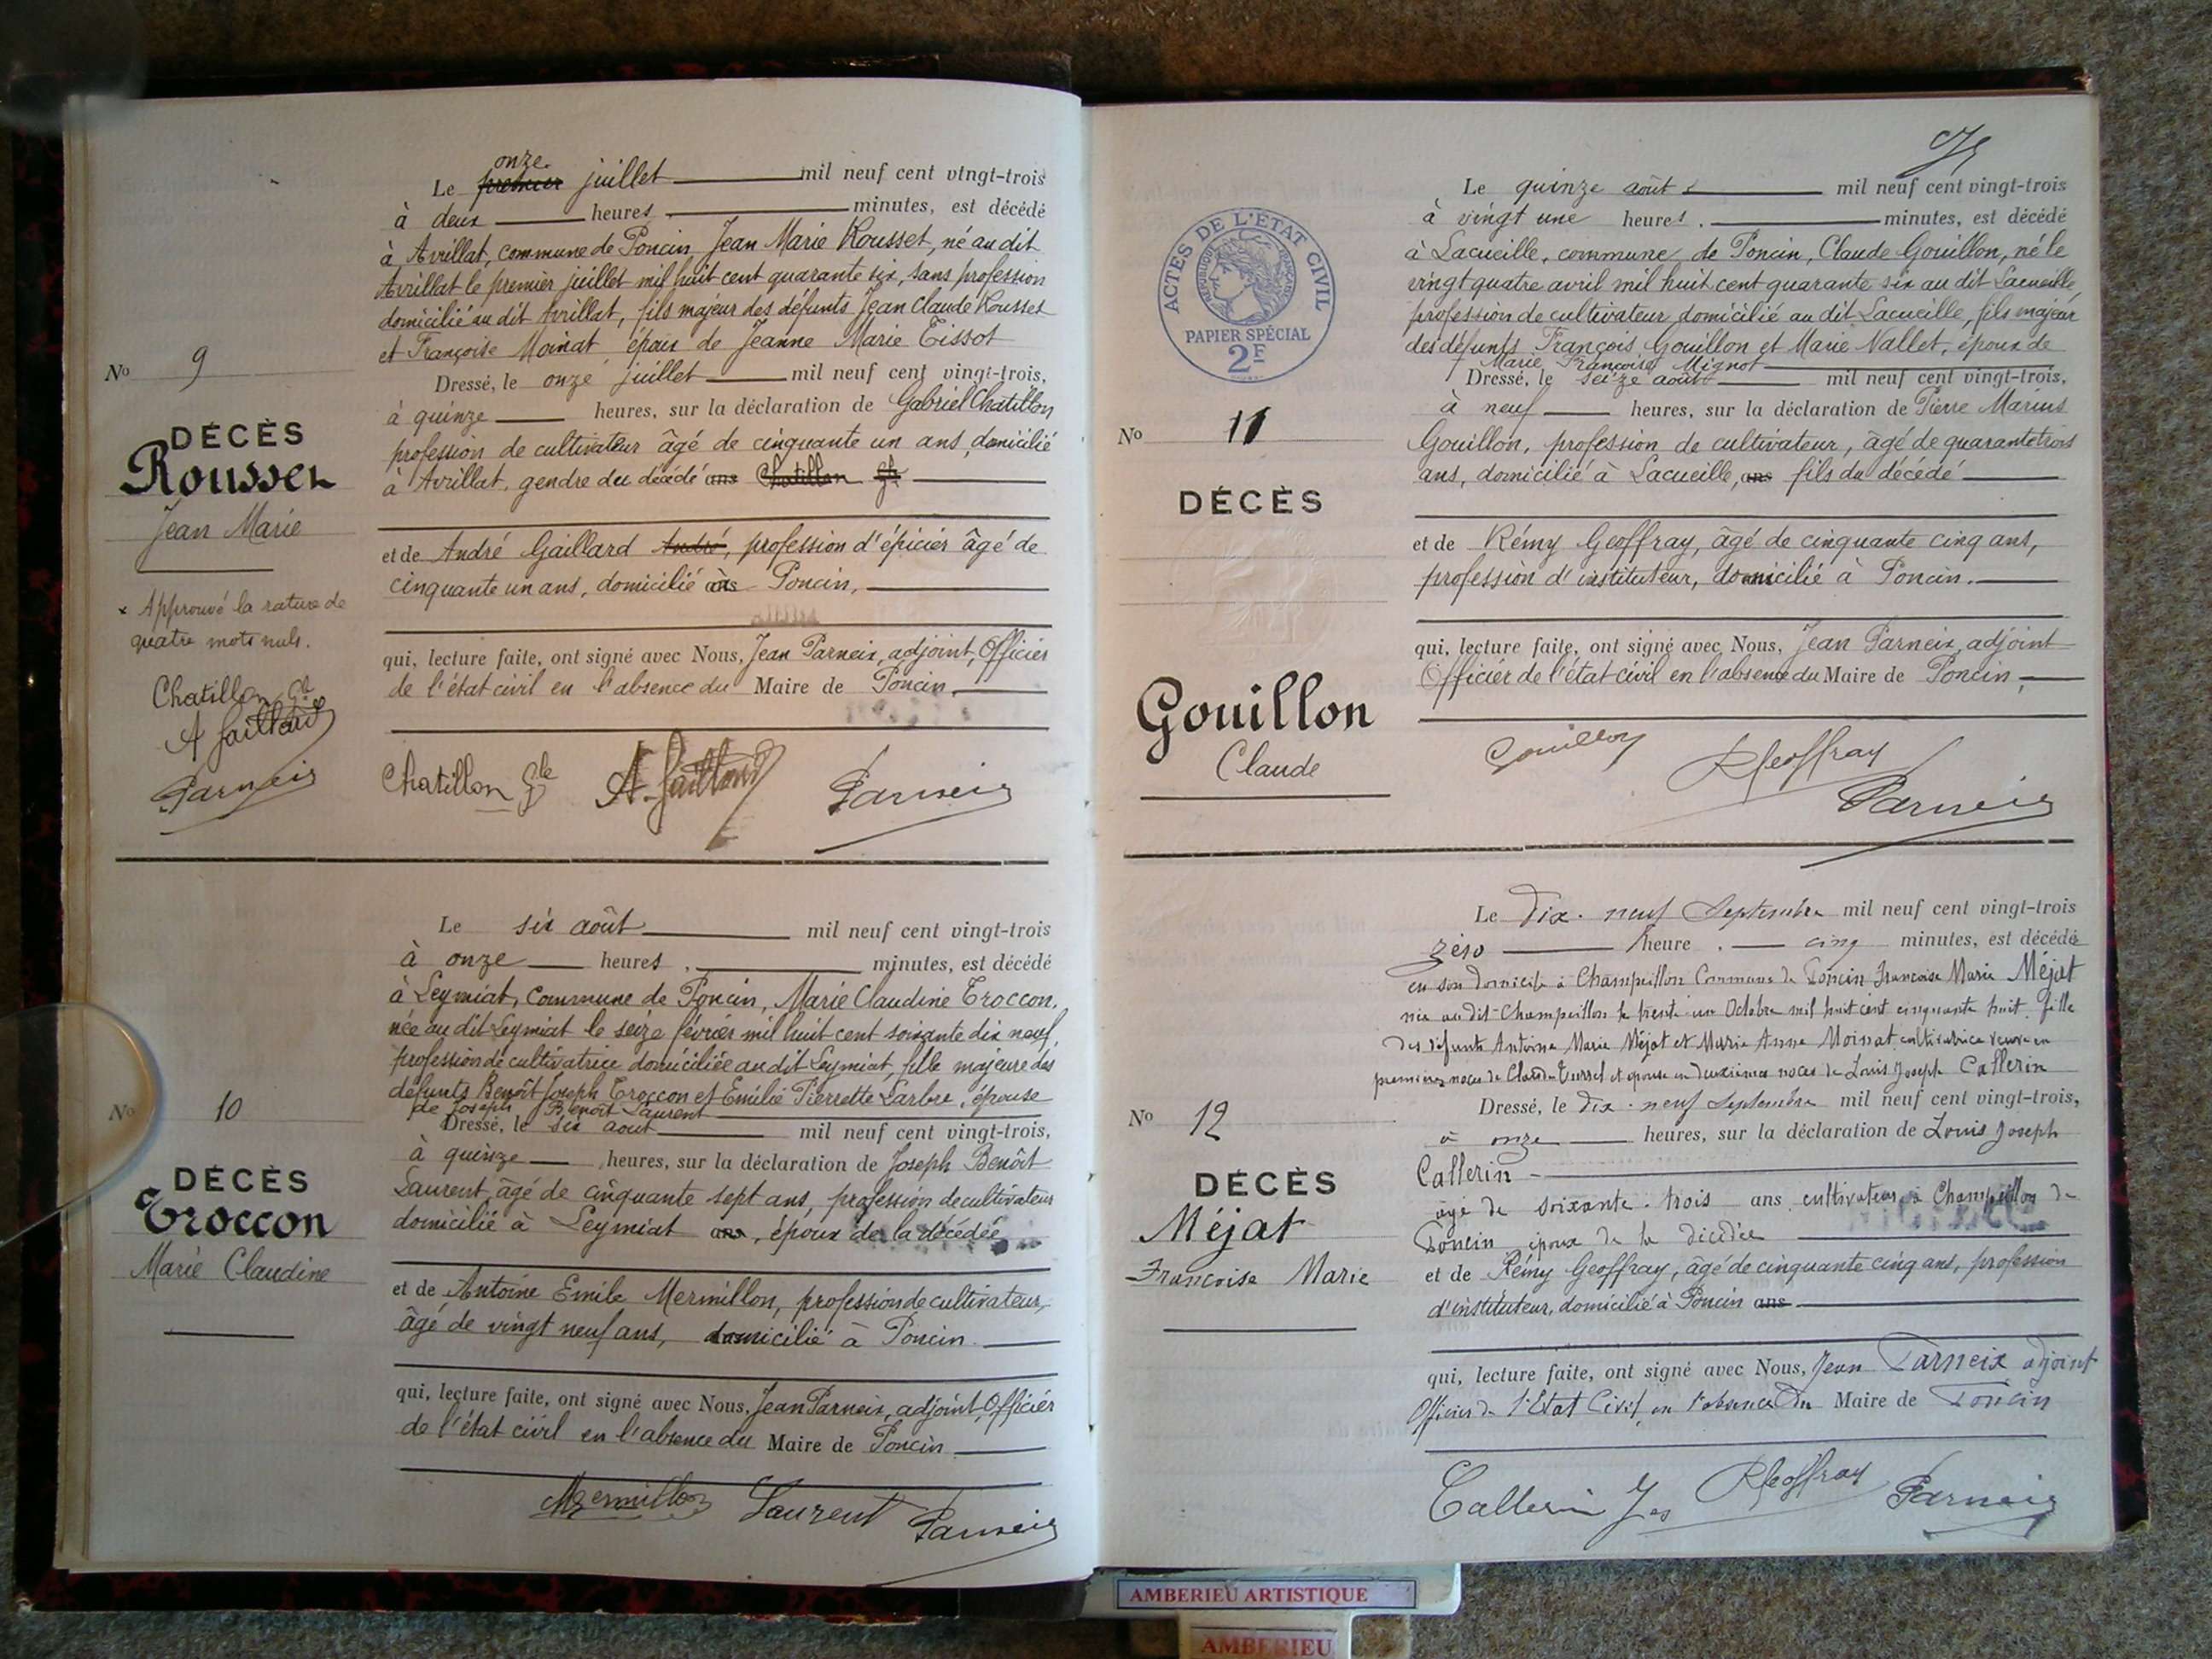 onze
Le premier juillet mil neuf cent vingt-trois
à deux heures minutes, est décédé
à Avrillat, commune de Poncin Jean Marie Rousset, né au dit
Avrillat le premier juillet mil huit cent quarante six, sans profession
domicilié au dit Avrillat, fils majeur des défunts Jean Claude Rousset
et Françoise Moinat, époux de Jeanne Marie Tissot
Dressé, le onze juillet mil neuf cent vingt-trois,
à quinze heures, sur la déclaration de Gabriel Chatillon
profession de cultivateur âgé de cinquante un ans, domicilié
à Avrillat, gendre du décédé ans Chatillon
et de André Gaillard André, profession d'épicier âgé de
cinquante un ans, domicilié à Poncin,
qui, lecture faite, ont signé avec Nous, Jean Parneix, adjoint, Officier
de l'état civil en l'absence du Maire de Poncin.
Chatillon Gle A. Gaillard Parneix
No 9
DÉCÈS
Rousset
Jean Marie
x Approuvé la rature de
quatre mots nuls.
Chatillon Gle
A Gaillard
Parneix
Le six août mil neuf cent vingt-trois
à onze heures, minutes, est décédé
à Leymiat, Commune de Poncin, Marie Claudine Troccon,
née au dit Leymiat le seize février mil huit cent soixante dix neuf,
profession de cultivatrice domiciliée au dit Leymiat, fille majeure des
défunts Benoît Joseph Troccon et Emilie Pierrette Larbre, épouse
de Joseph Benoît Laurent
Dressé, le six août mil neuf cent vingt-trois,
à quinze heures, sur la déclaration de Joseph Benoît
Laurent, âgé de cinquante sept ans, profession de cultivateur
domicilié à Leymiat ans, époux de la décédée
et de Antoine Emile Mermillon, profession de cultivateur,
âgé de vingt neuf ans, domicilié à Poncin.
qui, lecture faite, ont signé avec Nous, Jean Parneix, adjoint, Officier
de l'état civil en l'absence du Maire de Poncin
Mermillon Laurent Parneix
No 10
DÉCÈS
Troccon
Marie Claudine
Le quinze août mil neuf cent vingt-trois
à vingt une heures. minutes, est décédé
à Lacueille, commune de Poncin, Claude Gouillon, né le
vingt quatre avril mil huit cent quarante six au dit Lacueille,
profession de cultivateur domicilié au dit Lacueille, fils majeur
des défunts François Gouillon et Marie Vallet, époux de
Marie Françoise Mignot
Dressé, le seize août mil neuf cent vingt-trois,
à neuf heures, sur la déclaration de Pierre Marius
Gouillon, profession de cultivateur, âgé de quarante trois
ans, domicilié à Lacueille, ans fils du décédé
et de Rémy Geoffray, âgé de cinquante cinq ans,
profession d'instituteur, domicilié à Poncin.
qui, lecture faite, ont signé avec Nous, Jean Parneix, adjoint
Officier de l'état civil en l'absence du Maire de Poncin,
Gouillon RGeoffray
Parneix
ACTES DE L'ETAT CIVIL
REPUBLIQUE FRANÇAISE
PAPIER SPÉCIAL
2F
No 11
DÉCÈS
Gouillon
Claude
Le dix-neuf Septembre mil neuf cent vingt-trois
zéro heure. cinq minutes, est décédée
en son domicile à Champeillon Commune de Poncin Françoise Marie Méjat
née au dit Champeillon le trente-un Octobre mil huit cent cinquante huit, fille
des défunts Antoine Marie Méjat et Marie Anne Moinat cultivatrice veuve en
premières noces de Claude et épouse en deuxièmes noces de Louis Joseph Callerin
Dressé, le dix-neuf Septembre mil neuf cent vingt-trois,
à onze heures, sur la déclaration de Louis Joseph
Callerin
âgé de soixante-trois ans, cultivateur à Champeillon de
Poncin époux de la décédée
et de Rémy Geoffray, âgé de cinquante cinq ans, profession
d'instituteur, domicilié à Poncin ans
qui, lecture faite, ont signé avec Nous, Jean Parneix adjoint
Officier de l'Etat Civil en l'absence du Maire de Poncin
Callerin Jes RGeoffray Parneix
No 12
DÉCÈS
Méjat
Françoise Marie
AMBERIEU ARTISTIQUE
AMBERIEU